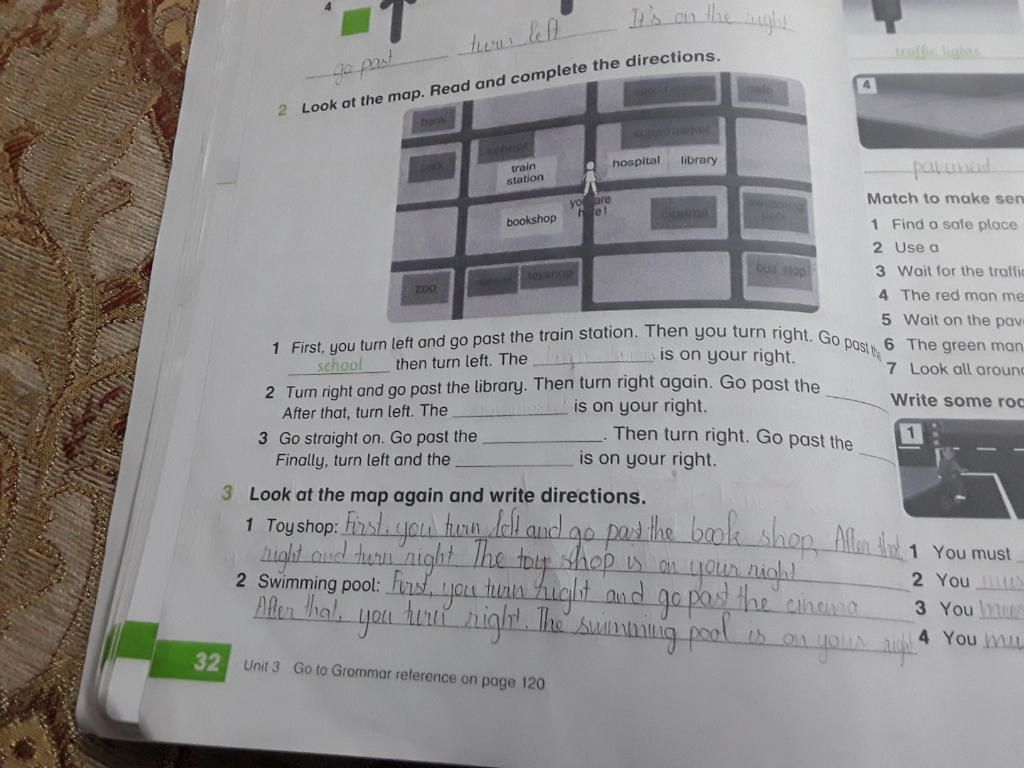 4
go past turn left It's on the right
2 Look at the map. Read and complete the directions.
bank sports centre cafe
school supermarket
park train station hospital library
you are here!
bookshop cinema swimming pool
zoo toyshop bus stop
1 First, you turn left and go past the train station. Then you turn right. Go past the
school then turn left. The is on your right.
2 Turn right and go past the library. Then turn right again. Go past the
After that, turn left. The is on your right.
3 Go straight on. Go past the . Then turn right. Go past the
Finally, turn left and the is on your right.
3 Look at the map again and write directions.
1 Toy shop: First, you turn left and go past the book shop, After that,
right and turn right. The toy shop is on your right
2 Swimming pool: First, you turn right and go past the cinema
After that, you turn right. The swimming pool is on your right
32 Unit 3 Go to Grammar reference on page 120
traffic lights
4
pavement
Match to make sen
1 Find a safe place
2 Use a
3 Wait for the traffic
4 The red man me
5 Wait on the pav
6 The green man
7 Look all aroun
Write some roa
1
1 You must
2 You mus
3 You mus
4 You mu